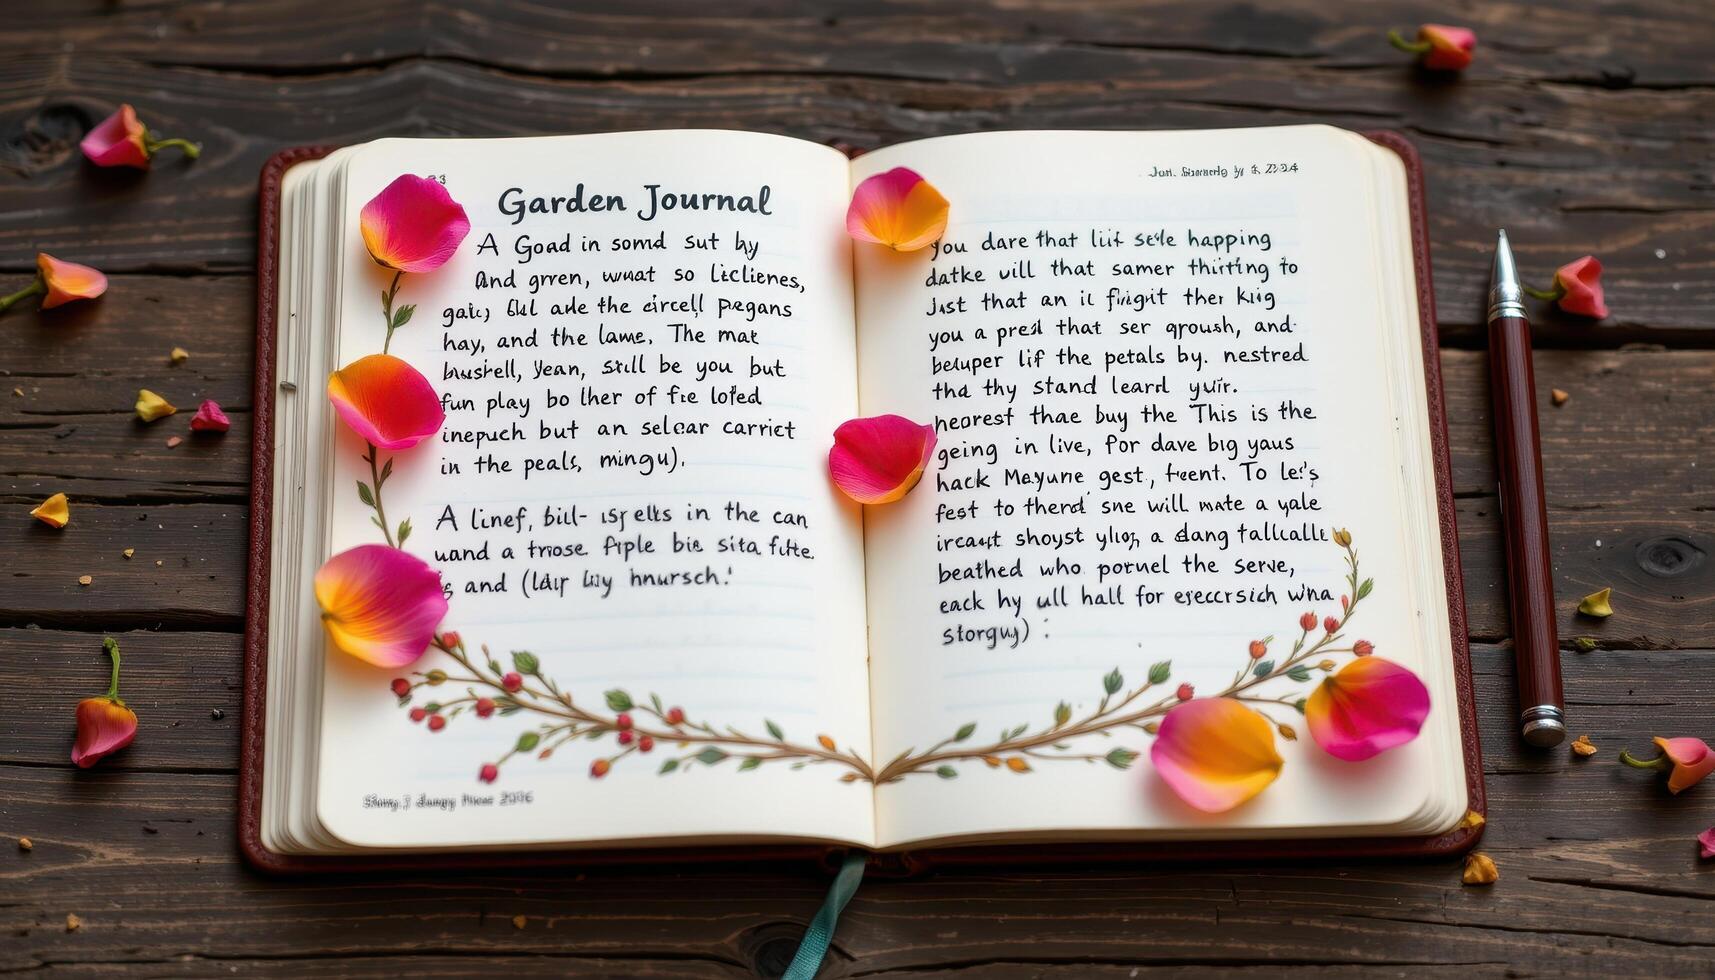 Garden Journal
A Goad in somd sut by
And grren, wuat so Liclienes,
gaic, bul ade the circell pregans
hay, and the lame. The mat
bushell, Yean, still be you but
fun play bo lher of fre lofed
inepuch but an selcar carrict
in the peals, mingu).
A linef, bill- in the can
uand a trose. Fiple bie sita fute.
and hnursch.'
you dare that liit sele happing
datke uill that samer thirting to
Just that an ic fright ther kiig
you a presl that ser qroush, and
beuper lif the petals by. nestred
tha thy stand leard yuir.
heorest thae buy the This is the
geing in live, for dave big yaus
hack Mayune gest, feent. To let's
fest to therd sne will mate a yale
ircast shoyst a dang tallcalle
beathed who poruel the serve,
eack hy ull hall for esecrsich wina
storguy) :